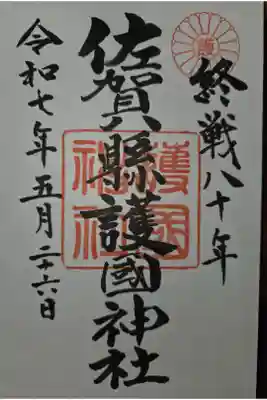 終戦八十年
佐賀縣護國神社
護國
神社
令和七年五月二十六日